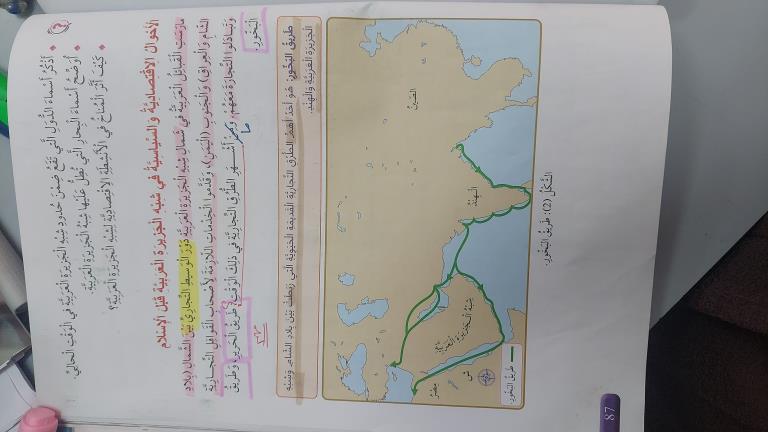 • أَذْكُرُ أَسْماءَ الدُّوَلِ الَّتي تَقَعُ ضِمْنَ حُدودِ شِبْهِ الْجَزيرَةِ الْعَرَبِيَّةِ في الْوَقْتِ الْحالِيِّ.
• أُوَضِّحُ أَسْماءَ الْبِحارِ الَّتي تُطِلُّ عَلَيْها شِبْهُ الْجَزيرَةِ الْعَرَبِيَّةِ.
• كَيْفَ أَثَّرَ الْمُناخُ في الْأَنْشِطَةِ الِاقْتِصادِيَّةِ لِشِبْهِ الْجَزيرَةِ الْعَرَبِيَّةِ؟
الْأَحْوالُ الِاقْتِصادِيَّةُ وَالسِّياسِيَّةُ في شِبْهِ الْجَزيرَةِ الْعَرَبِيَّةِ قَبْلَ الْإِسْلامِ
مارَسَتِ الْقَبائِلُ الْعَرَبِيَّةُ في شَمالِ شِبْهِ الْجَزيرَةِ الْعَرَبِيَّةِ دَوْرَ الْوَسيطِ التِّجارِيِّ بَيْنَ الشَّمالِ (بِلادِ
الشّامِ وَالْعِراقِ) وَالْجَنوبِ (الْيَمَنِ)، وَقَدَّموا الْخِدْماتِ اللّازِمَةَ لِأَصْحابِ الْقَوافِلِ التِّجارِيَّةِ
وَتَبادَلوا التِّجارَةَ مَعَهُمْ. وَمِنْ أَشْهَرِ الطُّرُقِ التِّجارِيَّةِ في ذلِكَ الْوَقْتِ: طَريقُ الْحَريرِ، وَطَريقُ
الْبَخورِ.
طَريقُ الْبَخورِ: هُوَ أَحَدُ أَهَمِّ الطُّرُقِ التِّجارِيَّةِ الْقَديمَةِ الْحَيَوِيَّةِ الَّتي رَبَطَتْ بَيْنَ بِلادِ الشّامِ، وَشِبْهِ
الْجَزيرَةِ الْعَرَبِيَّةِ وَالْهِنْدِ.
الصّينُ
الْهِنْدُ
شِبْهُ الْجَزيرَةِ الْعَرَبِيَّةِ
مِصْرُ
ش
طَريقُ الْبَخورِ.
الشَّكْلُ (2): طَريقُ الْبَخورِ.
87